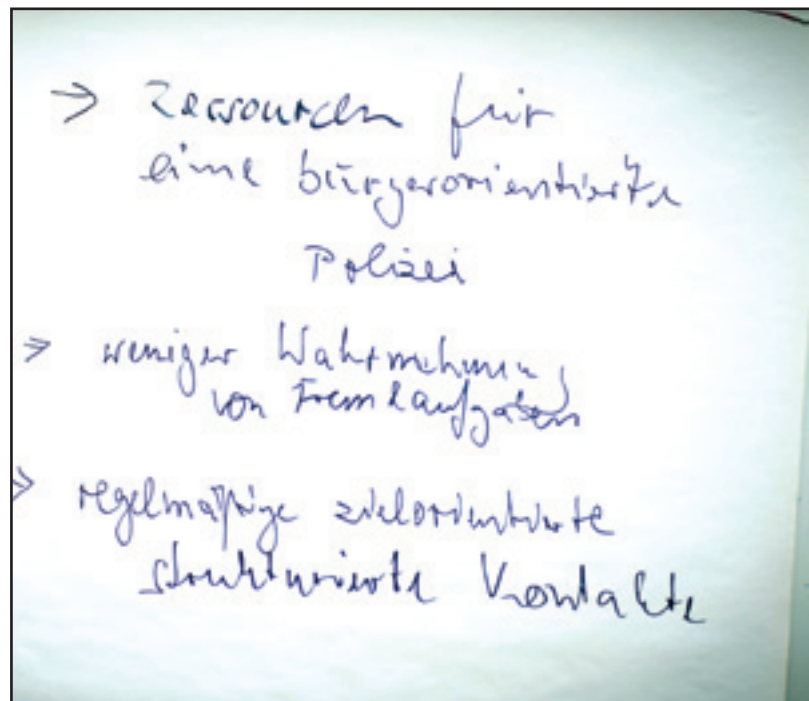 → Ressourcen für
eine bürgerorientierte
Polizei
→ weniger Wahrnehmung
von Fremdaufgaben
→ regelmäßige zielorientierte
strukturierte Kontakte